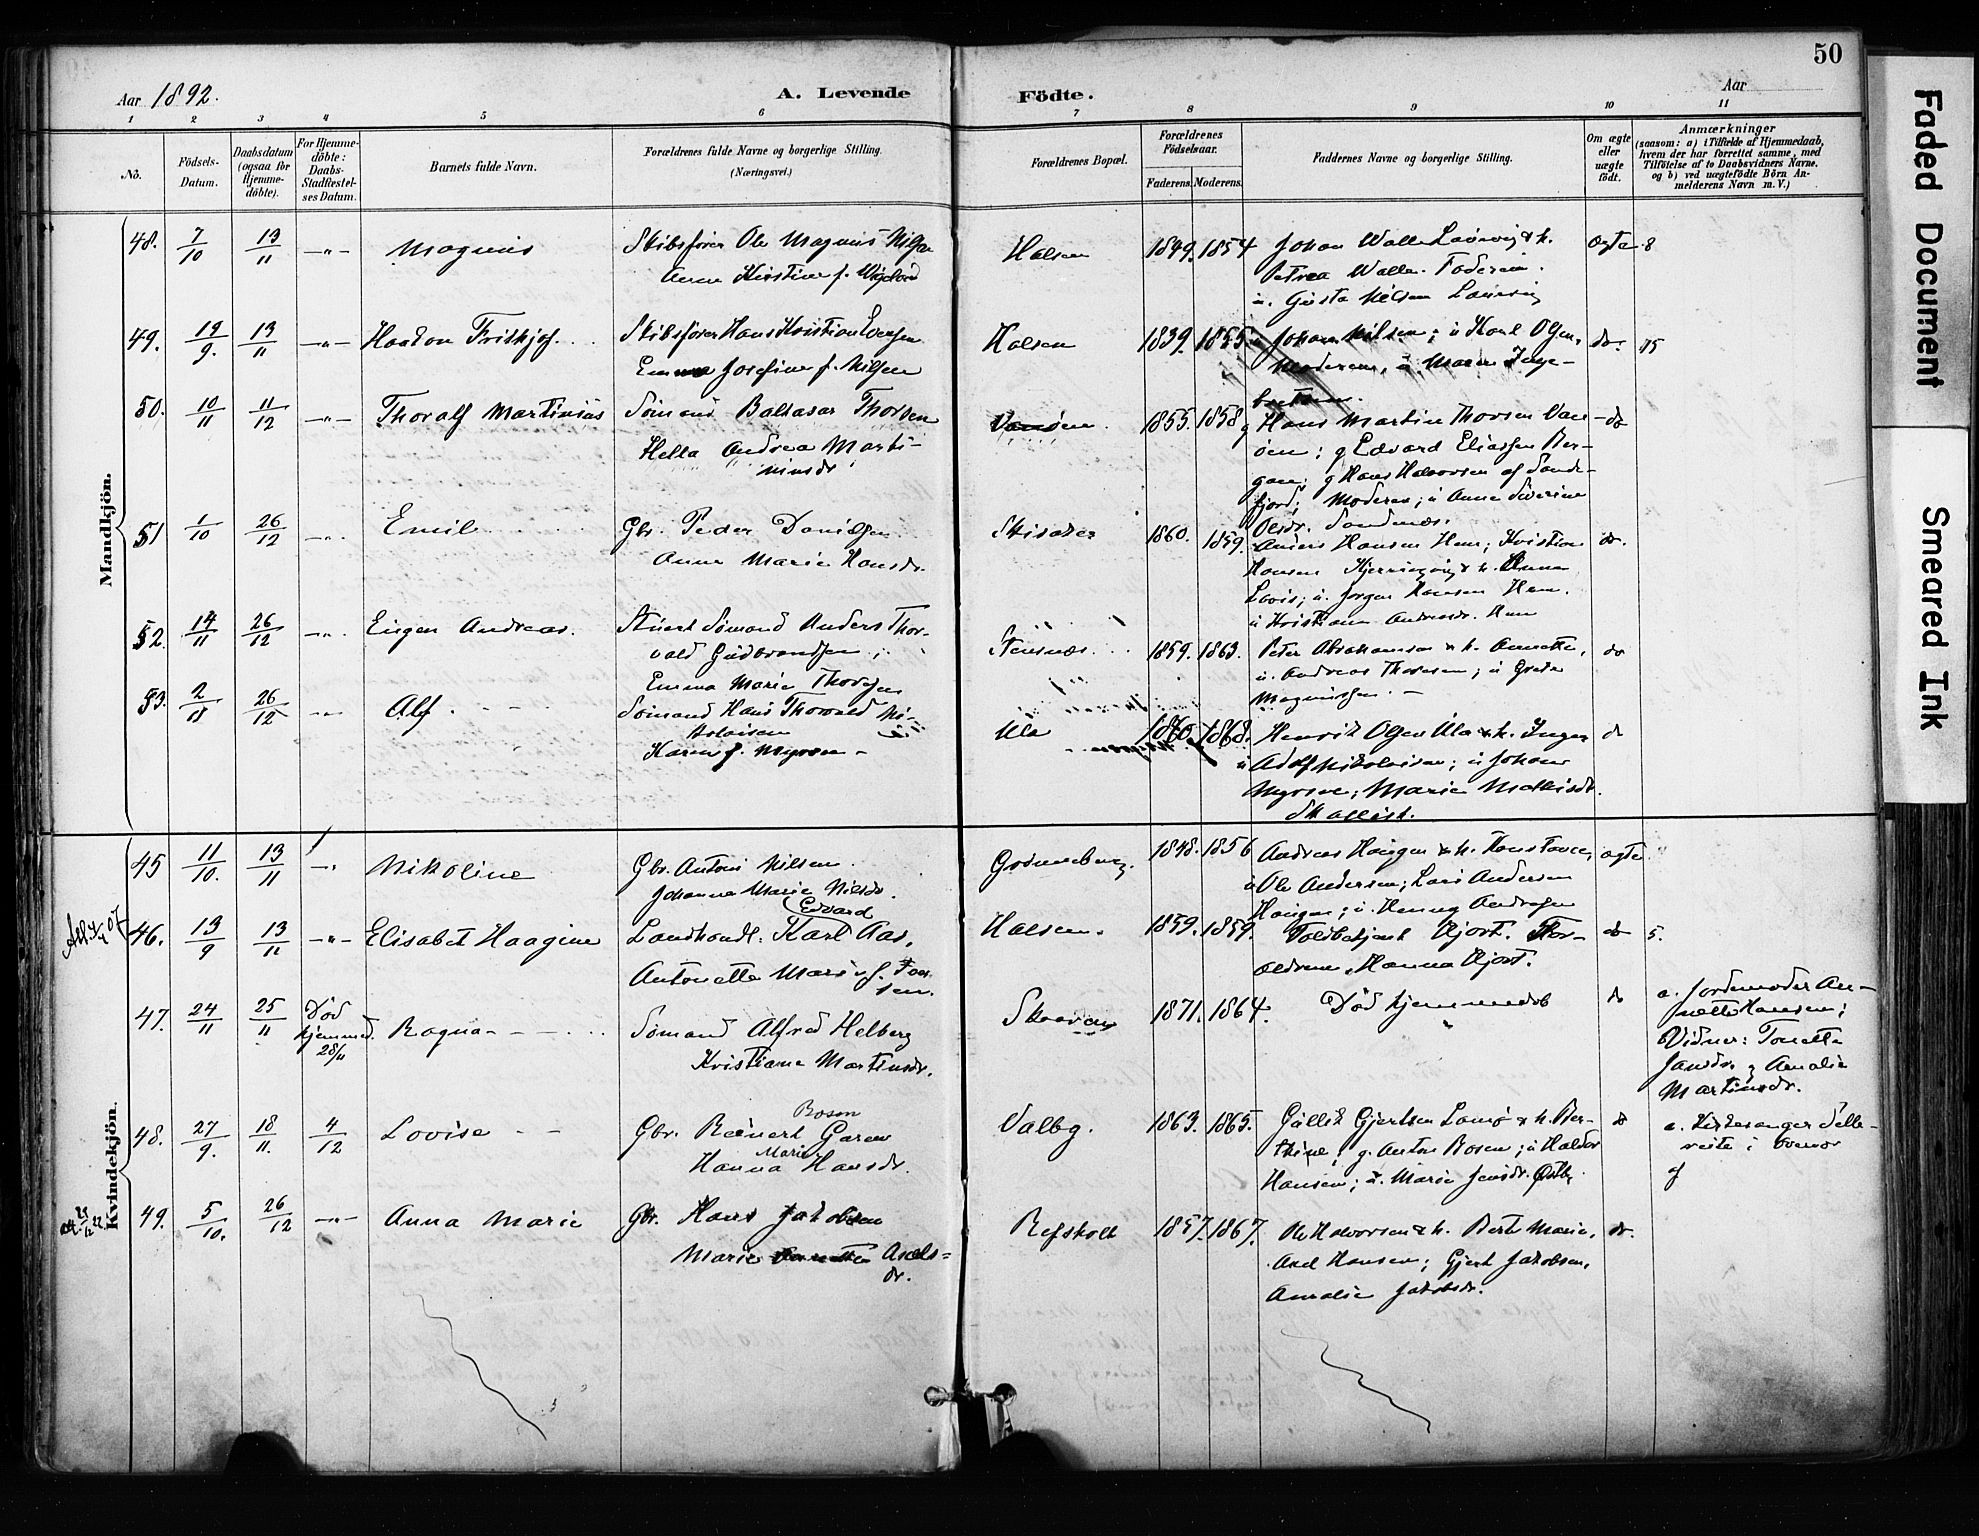 50
Aar 1892.
A. Levende Födte.
Aar
1 2 3 4 5 6 7 8 9 10 11
No.
Födsels-Datum.
Daabsdatum (ogsaa for Hjemme-döbte).
For Hjemme-döbte: Daabs-Stadfæstel-ses Datum.
Barnets fulde Navn.
Forældrenes fulde Navne og borgerlige Stilling.
(Næringsvei.)
Forældrenes Bopæl.
Forældrenes Födselsaar.
Faderens. Moderens.
Faddernes Navne og borgerlige Stilling.
Om ægte eller uægte födt.
Anmærkninger
(saasom: a) i Tilfælde af Hjemmedaab,
hvem der har forrettet samme, med
Tilföielse af to Daabsvidners Navne.
og b) ved uægtefödte Börn An-
melderens Navn m. V.)
Mandkjön.
48. 7/10 13/11 -"- Magnus
Skibsfører Ole Magnus Nilsen
Anne Kirstine f.
Halsen 1849. 1854
Johan Walle Laurvig & h.
Petrea Walle. Faderen.
u. Gusta Nilsen Laurvig
ægte 8
49. 19/9. 13/11 -"- Haakon Frithjof.
Skibsfører Hans Kristian Evensen
Emma Josefine f. Nilsen
Halsen 1839. 1855
Johan Nilsen; u Karl Olsen,
Moderen, u. Maren Inge-
bretsen.
do. 15
50. 10/11 11/12 -"- Thoralf Martinius
Sömand Baltasar Thorsen
Hella Andrea Marti-
niusdr
Vamöen. 1855. 1858
g Hans Martin Thorsen Vam-
öen; g Edvard Eliassen Ber-
gan; g Hans Halvorsen af Sande-
fjord; Moderen; u Anne Severine
Olsdr. Sandnæs.
do
51 1/10 26/12 -"- Emil
Gbr. Peder Danielsen
Anne Marie Hansdr.
Skisaker 1860. 1859.
Anders Hansen Hem; Kristian
Hansen Kjerringvig & h. Anna
Lovis; u. Jørgen Hansen Hem.
u Kristiane Andersdr. Hem
do.
52. 14/11 26/12 -"- Eugen Andreas.
Stuert Sömand Anders Thor-
vald Gudbrandsen;
Emma Marie Thorsen
Stensnæs. 1859. 1863.
Peter Abrahamsen & h. Annette,
u. Andreas Thoresen; u Grete
Magnussen.
do
53. 2/11 26/12 -"- Alf
Sömand Hans Thorvald Ni-
kolaisen
Karen f. Myrsen
Ula 1860. 1868.
Henrik Olsen Ula & h. Inger
u Adolf Nikolaisen; u Johan
Myrsen; Marie Mathisdr.
Skallist.
do
Kvindekjön.
45 11/10. 13/11 -"- Nikoline
Gbr. Anton Nilsen
Johanne Marie Nilsdr.
Grönneberg. 1848. 1856
Andreas Haugen & h. Konstance,
u Ole Andersen; Lars Andersen
Haugen; u. Henny Andresen
ægte
46. 13/9 13/11 -"- Elisabet Haagine
Edvard
Landhandl. Karl Aas,
Antonette Marie f. Lar-
sen.
Halsen. 1859. 1859.
Toldbetjent Hjort. For-
ældrene, Hanna Hjort.
do 5.
47. 24/11 25/11 Död hjemmed. 28/11 Ragna
Sömand Alfred Helberg
Kristiane Martinsdr.
Skaaran 1871. 1864.
Död hjemmedöb
do
a. Jordemoder An-
nette Hansen;
Vidner: Tonette
Jansdr. g Amalie
Martinsdr.
48. 27/9. 18/11. 4/12 Lovise
Gbr. Reinert Garen
Bosen
Marie
Hanna Hansdr.
Valby. 1863. 1865.
Gullik Gjertsen Lamö & h. Ber-
thine; g. Anton Bosen; u Halvor
Hansen; u. Marie Jensdr. Östby.
do
a. Kirkesanger Telle-
49. 5/10. 26/12 -"- Anna Marie
Gbr. Hans Jakobsen
Marie Axels-
dr.
Refsholt 1857. 1867.
Ole Halvorsen & h. Berte Marie,
Axel Hansen; Gjert Jakobsen,
Amalie Jakobsdr.
do.
Faded Document
Smeared Ink